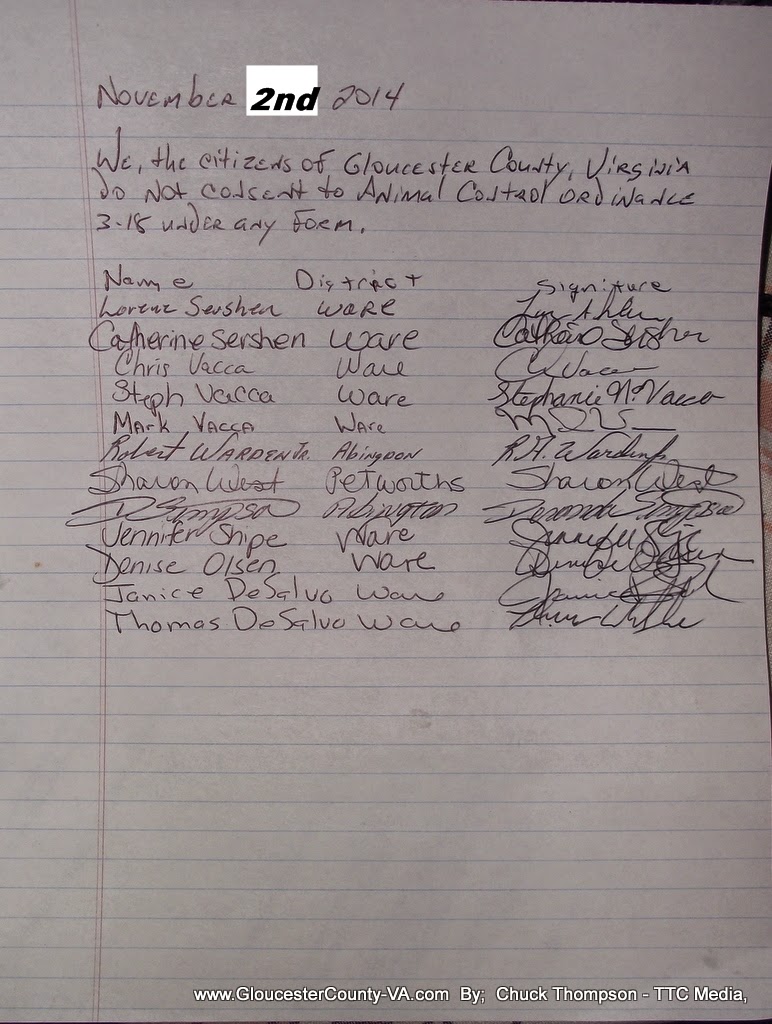 November 2nd 2014
We, the citizens of Gloucester County, Virginia
do not consent to Animal Control Ordinance
3-18 under any form.
Name District Signiture
Lorene Sershen Ware
Catherine Sershen Ware Catherine Sershen
Chris Vacca Ware C Vacca
Steph Vacca Ware Stephanie N. Vacca
Mark Vacca Ware
Robert Warden Jr. Abingdon R.A. Warden Jr
Sharon West Petworths Sharon West
D Simpson Abington Simpson
Jennifer Shipe Ware
Denise Olsen Ware Denise Olsen
Janice DeSalvo Ware
Thomas DeSalvo Ware
www.GloucesterCounty-VA.com By; Chuck Thompson - TTC Media,